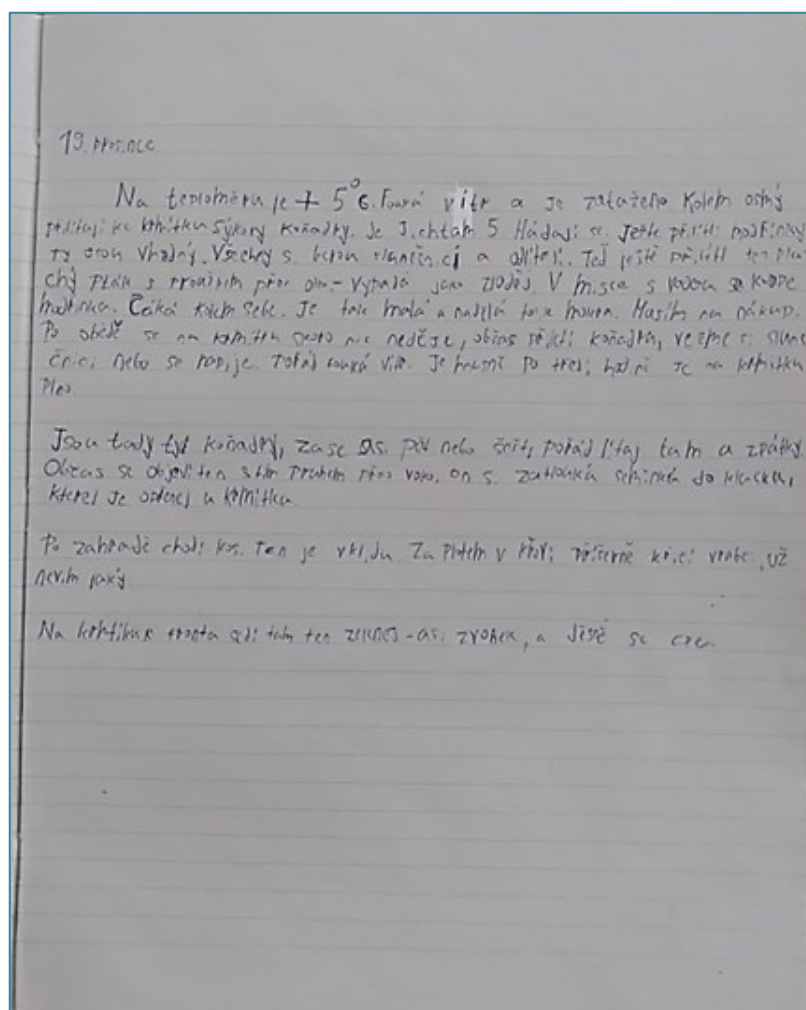 19. prosinec
Na teploměru je + 5°C. Fouká vítr a je zataženo Kolem osmý
přilítaj ke krmítku Sýkory koňadry. Je jich tam 5 Hádají se. Ještě přilítli modřinky
ty jsou vhodný. Všechny si berou slunečnici a odlítají. Teď ještě přilítl ten plachý
pták s proužkem přes oko - vypadá jako zloděj. V misce s vodou se koupe
modřinka. Čáká kolem sebe. Je tak malá a nadělá toho mourem. Musím na nákup.
Po obědě se na krmítku skoro nic neděje, občas přiletí koňadra, vezme si slune
čnici, nebo se napije. Pořád fouká vítr. Je hnední po třetí hodině je na krmítku
Plno.
Jsou tady tyt koňadry, zase asi pět nebo šest, pořád lítaj tam a zpátky.
Občas se objeví ten s tím pruhem přes voko. on si zatlouká semínka do klacku,
kterej je opřenej u krmítka
Po zahradě chodí kos. Ten je v klidu. Za plotem v křoví příšerně křičí vrabci, už
nevím jaký
Na krmítku fronta sedí tam ten zelenej - asi zvonek, a děsně se cpe.